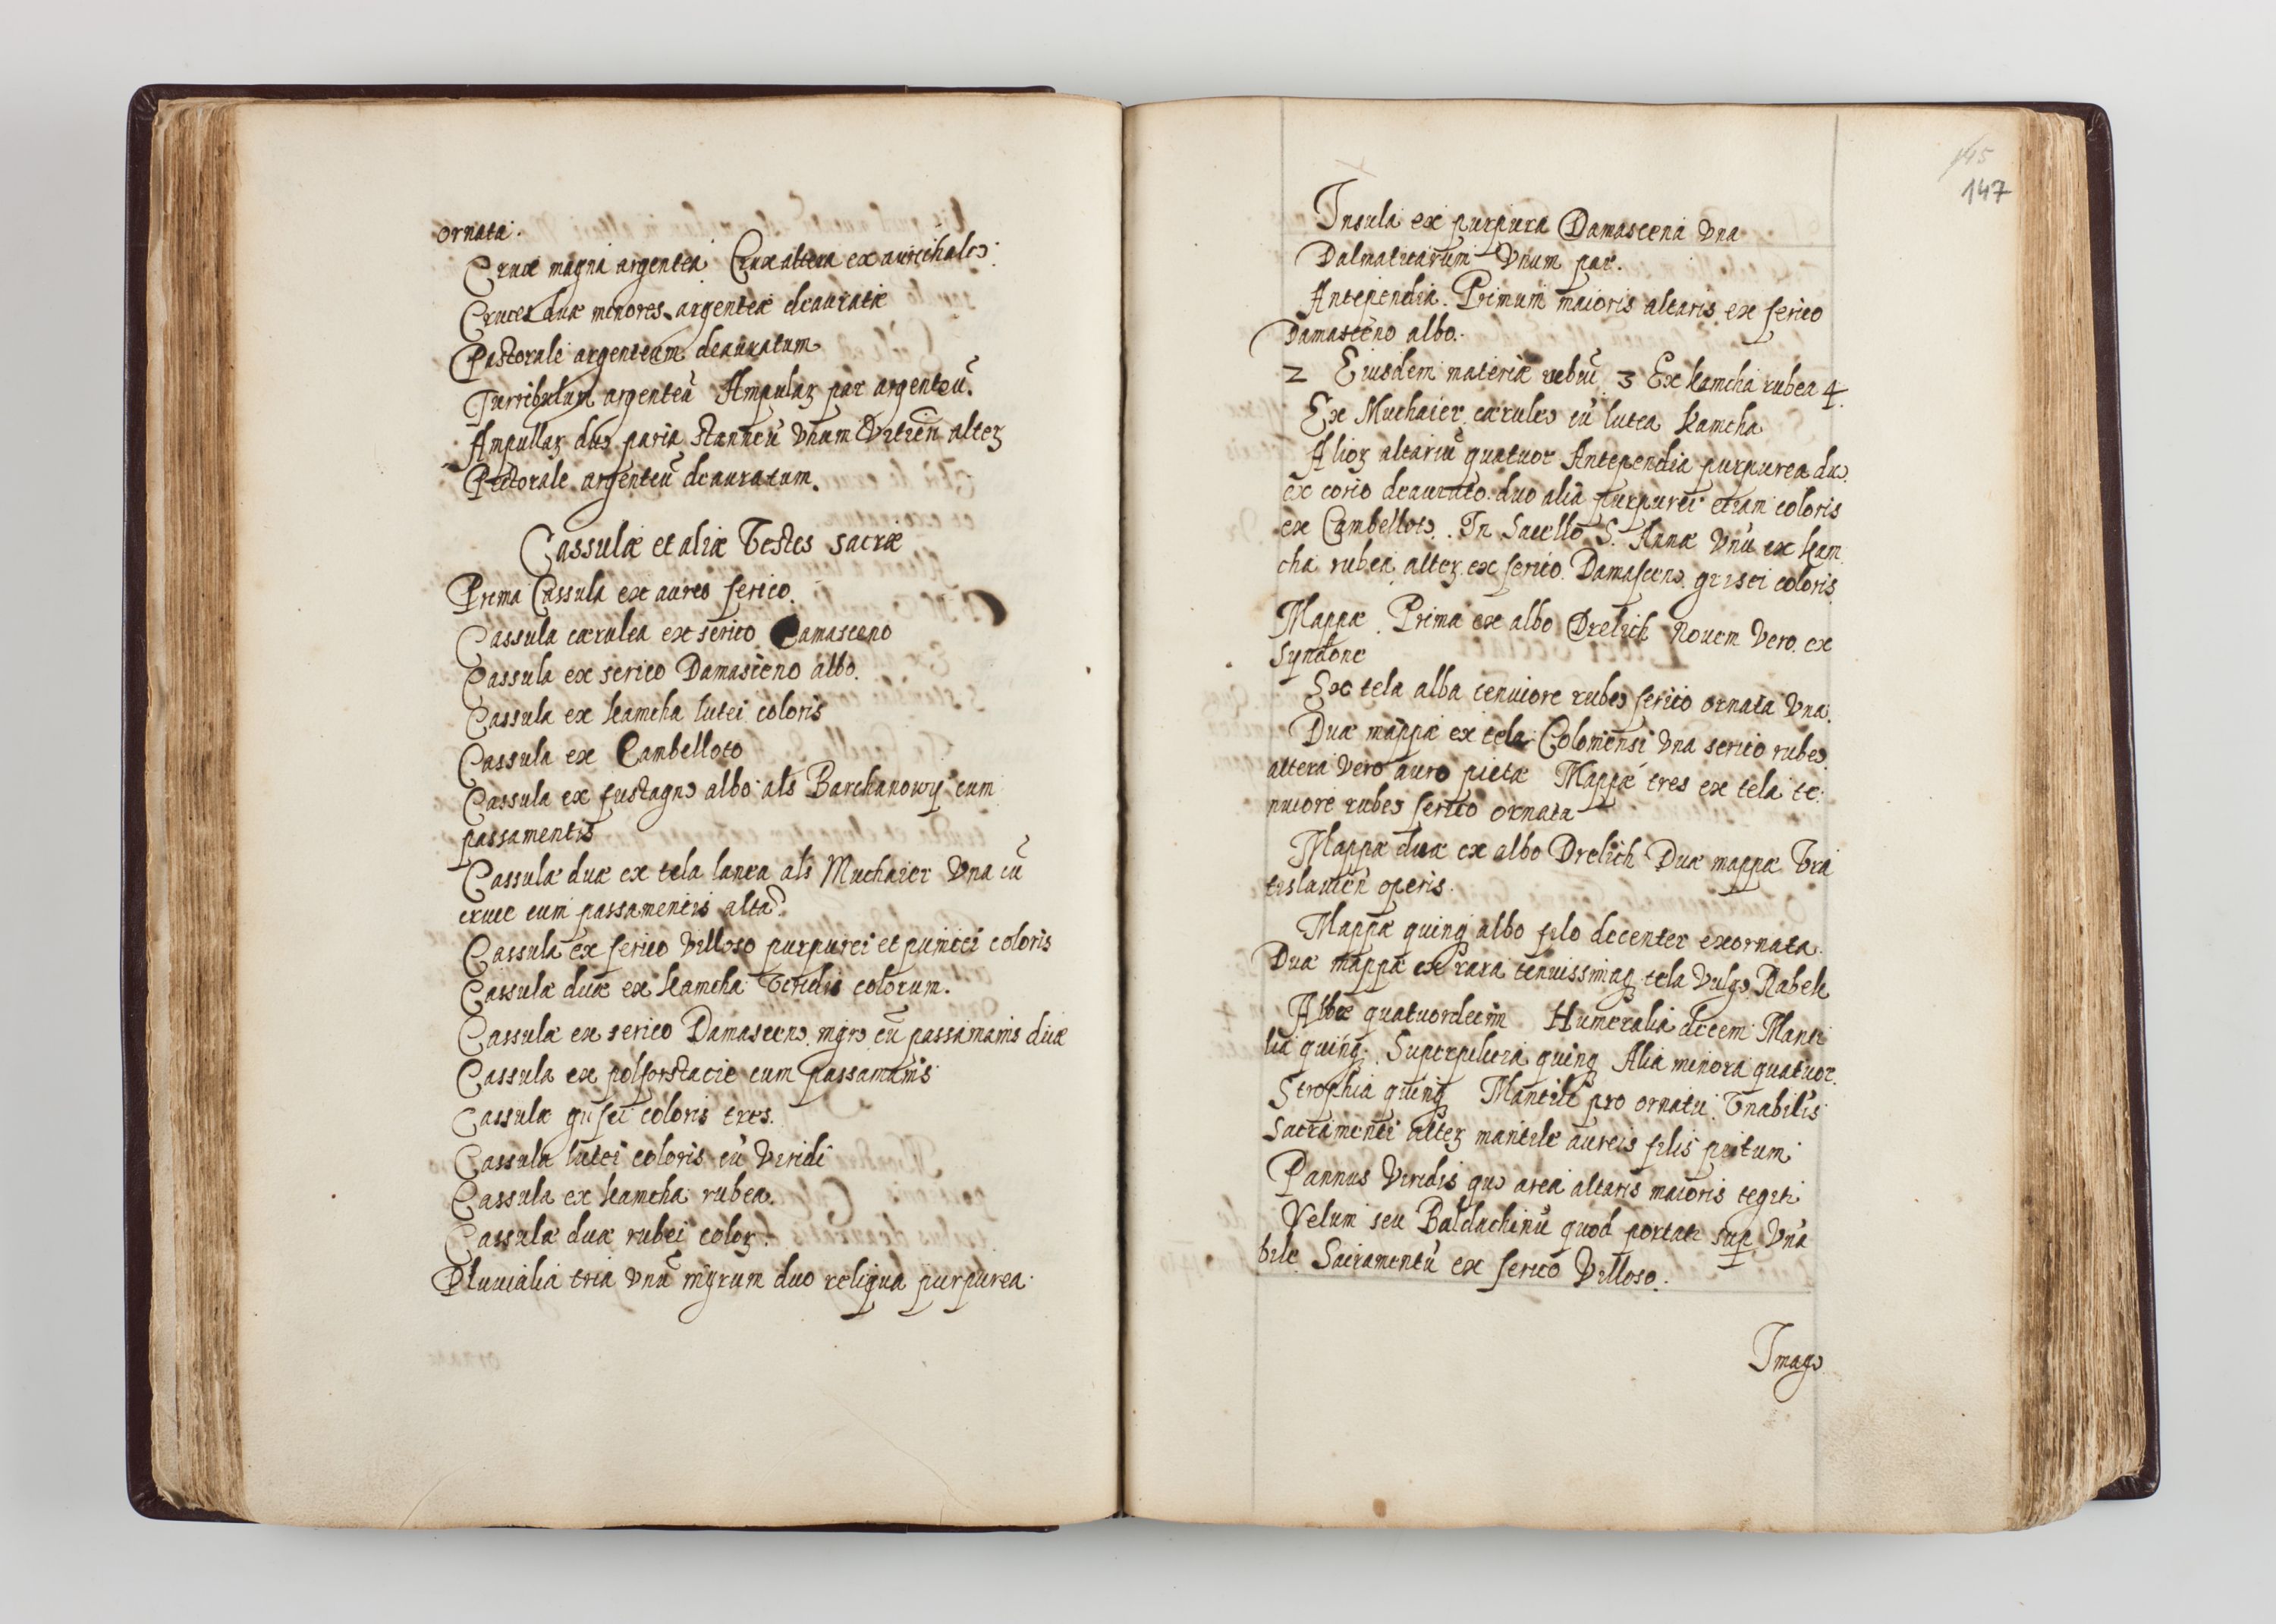 ornata.
Crux magna argentea Crux altera ex aurichalco.
Cruces duæ minores argenteæ deauratæ
Pastorale argenteum deauratum
Turribulum argenteũ Ampulaꝝ par argenteũ.
Ampullaꝝ duo paria stanneũ Vnum Vitreũ alteꝝ
Pectorale argenteũ deauratum.
Cassulæ et aliæ Vestes sacræ
Prima Cassula ex aureo serico.
Cassula cærulea ex serico Damasceno
Cassula ex serico Damasceno albo.
Cassula ex kamcha lutei coloris
Cassula ex Cambelloto
Cassula ex fustagno albo als Barchanowy cum
passamentis
Cassulæ duæ ex tela lanea als Muchaier Vna cũ
cruce cum passamentis alta
Cassula ex serico Villoso purpurei et punicei coloris
Cassulæ duæ ex kamcha Viridis colorum.
Cassulæ ex serico Damasceno nigro cũ passamanis duæ
Cassula ex polforstacie cum passamanis
Cassulæ grisei coloris tres.
Cassula lutei coloris cũ Viridi
Cassula ex kamcha rubea.
Cassulæ duæ rubei coloꝝ.
Pluuialia tria Vnũ nigrum duo reliqua purpurea.
145
147
Insula ex purpura Damascena Vna
Dalmaticarum Vnum par.
Antependia. Primum maioris altaris ex serico
Damasceno albo.
2 Eiusdem materiæ rubeũ 3 Ex kamcha rubea 4.
Ex Muchaier cæruleo cũ lutea kamcha
Alioꝝ altariũ quatuor Antependia purpurea duo
ex corio deaurato. duo alia purpurei etiam coloris
ex Cambelloto. In Sacello S. Annæ Vnũ ex kam
cha rubea alteꝝ ex serico Damasceno grisei coloris
Mappæ. Prima ex albo Drelich Nouem Vero ex
Syndone
Sex tela alba tenuiore rubeo serico ornata Vna.
Duæ mappæ ex tela Coloniensi Vna serico rubeo
altera Vero auro picta Mappæ tres ex tela te:
nuiore rubeo serico ornata
Mappæ duæ ex albo Drelich Duæ mappæ Vra
tislauien operis.
Mappæ quinq albo filo decenter exornata.
Duæ mappæ ex rara tenuissimaq tela Vulgo Rabek
Albæ quatuordecim Humeralia decem Manti
lia quinq. Superpelicia quinq Alia minora quatuor.
Strophia quinq Mantile pro ornatu Vnabilis
Sacramenti alteꝝ mantile aureis filis pictum
Pannus Viridis quo area altaris maioris tegitr
Velum seu Baldachinũ quod portatr sup Vna
bile Sacramentũ ex serico Villoso.
Imago